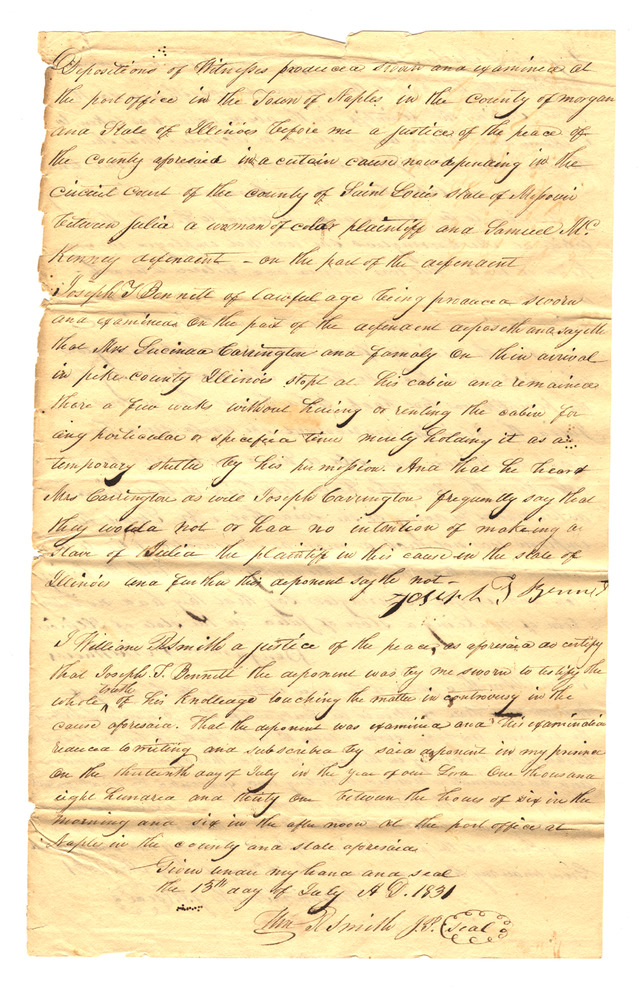 Depositions of Witnesses produced sworn and examined at
the post office in the Town of Naples in the County of morgan
and State of Illinois before me a justice of the peace of
the county aforesaid in a certain cause now depending in the
circuit court of the county of Saint Louis state of Missouri
between Julia a woman of color plaintiff and Samuel Mc
Kenney defendent - on the part of the defendent
Joseph T Bennett of lawful age being produced sworn
and examined on the part of the defendent deposeth and sayeth
that Mrs Lucinda Carrington and famaly on their arrival
in pike county Illinois stopt at his cabin and remained
there a few weeks without hireing or renting the cabin for
any particular or specified time merely holding it as a
temporary shelter by his permission. And that he heard
Mrs Carrington as well Joseph Carrington frequently say that
they would not or had no intention of making a
slave of Julia the plaintiff in this cause in the state of
Illinois and further this deponent sayeth not -
Joseph T Bennett
I William R Smith a justice of the peace as aforesaid do certify
that Joseph T. Bennett the deponent was by me sworn to testify the
whole truth of his knoledge touching the matter in controversy in the
cause aforesaid. That the deponent was examined and his examination
reduced to writing and subscribed by said deponent in my presence
on the thirteenth day of July in the year of our Lord One thousand
eight hundred and thirty one between the hours of six in the
morning and six in the after noon at the post office at
Naples in the county and state aforesaid
Given under my hand and seal
the 13th day of July A D. 1831
Wm R Smith J.P. Seal